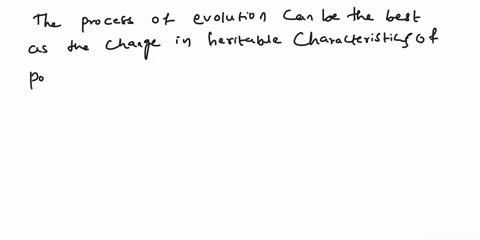 The process of evolution can be the best
as the change in heritable characteristics of
po